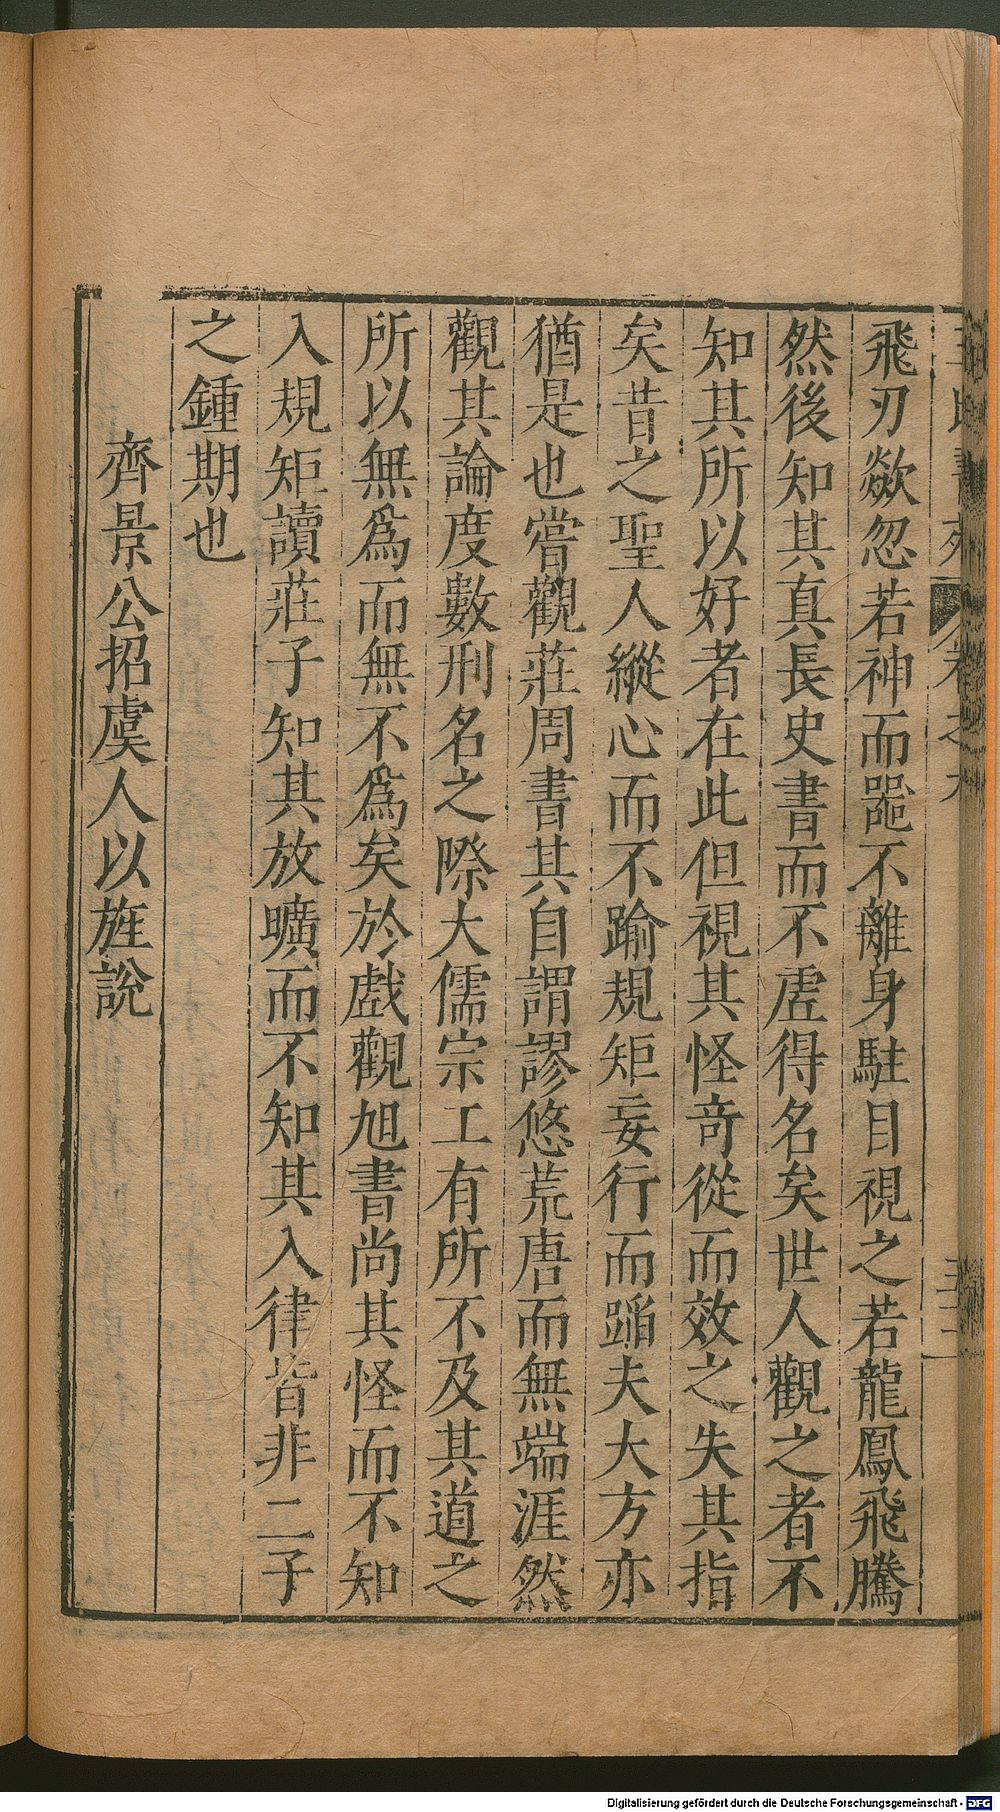 飛刃歘忽若神而器不離身駐目視之若龍鳳飛騰
然後知其真長史書而不虛得名矣世人觀之者不
知其所以好者在此但視其怪奇從而效之失其指
矣昔之聖人縱心而不踰規矩妄行而蹈夫大方亦
猶是也嘗觀莊周書其自謂謬悠荒唐而無端涯然
觀其論度數刑名之際大儒宗工有所不及其道之
所以無爲而無不爲矣於戲觀旭書尚其怪而不知
入規矩讀莊子知其放曠而不知其入律皆非二子
之鍾期也
齊景公招虞人以旌說
Digitalisierung gefördert durch die Deutsche Forschungsgemeinschaft - DFG